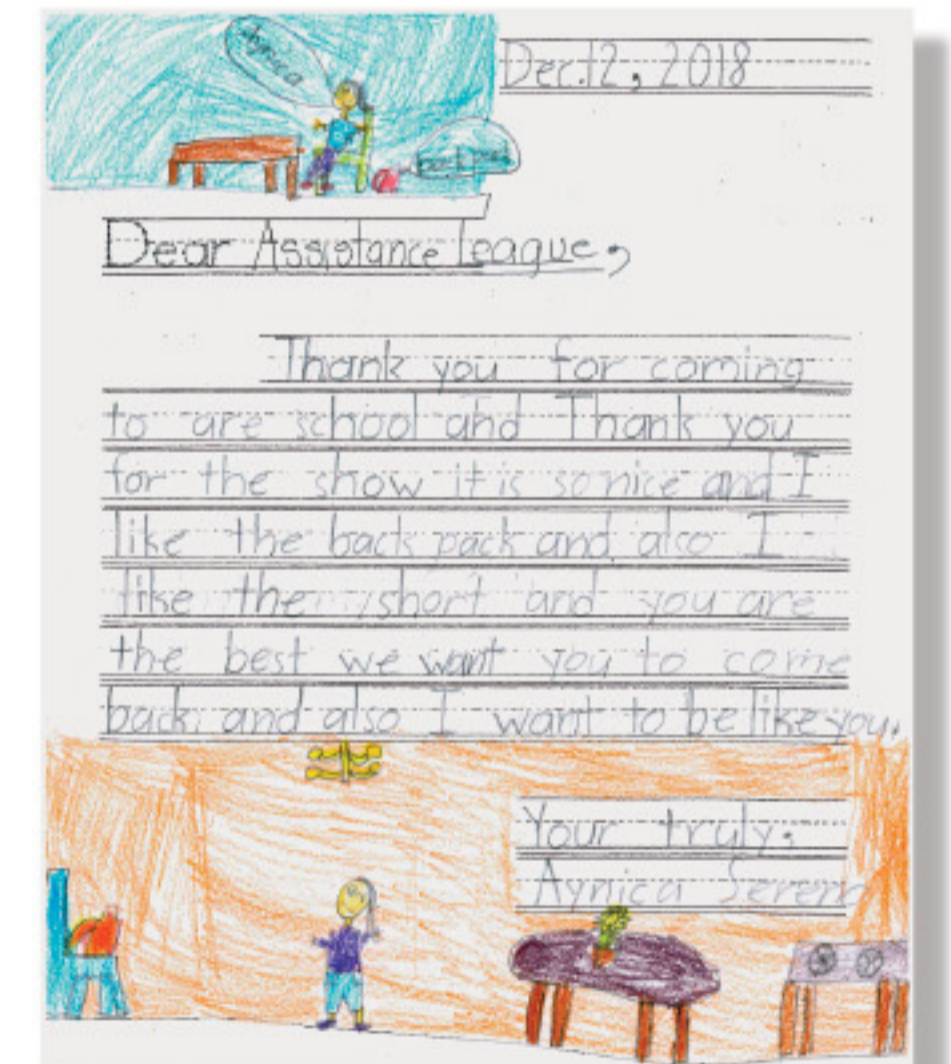 Aynica
Dec.12, 2018
back pack
Dear Assistance League,
Thank you for coming
to are school and Thank you
for the show it is so nice and I
like the back pack and also I
like the short and you are
the best we want you to come
back and also I want to be like you.
Your truly,
Aynica